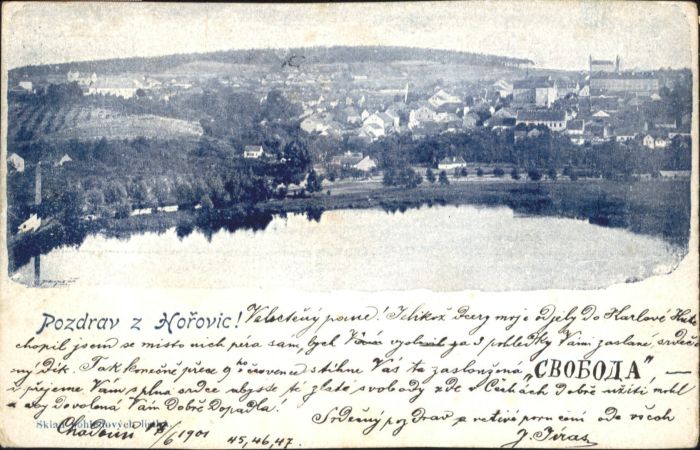 Pozdrav z Hořovic! Velectěný pane! Jelikož dcery moje odjely do Karlové Hutě
chopil jsem se místo nich péra sám, bych Vám vyslovil za 3 pohledky Vám zaslané, srdeč
ný dík. Tak konečně přece 9ho července stihne Vás ta zasloužená „СВОБОДА" —
i přejeme Vám s plna srdce abyste té zlaté svobody zde v Čechách dobře užil
a by dovolená Vám dobře dopadla!
Srdečný pozdrav a od všech
Sklad
6/1901 45, 46, 47. J. Jiras